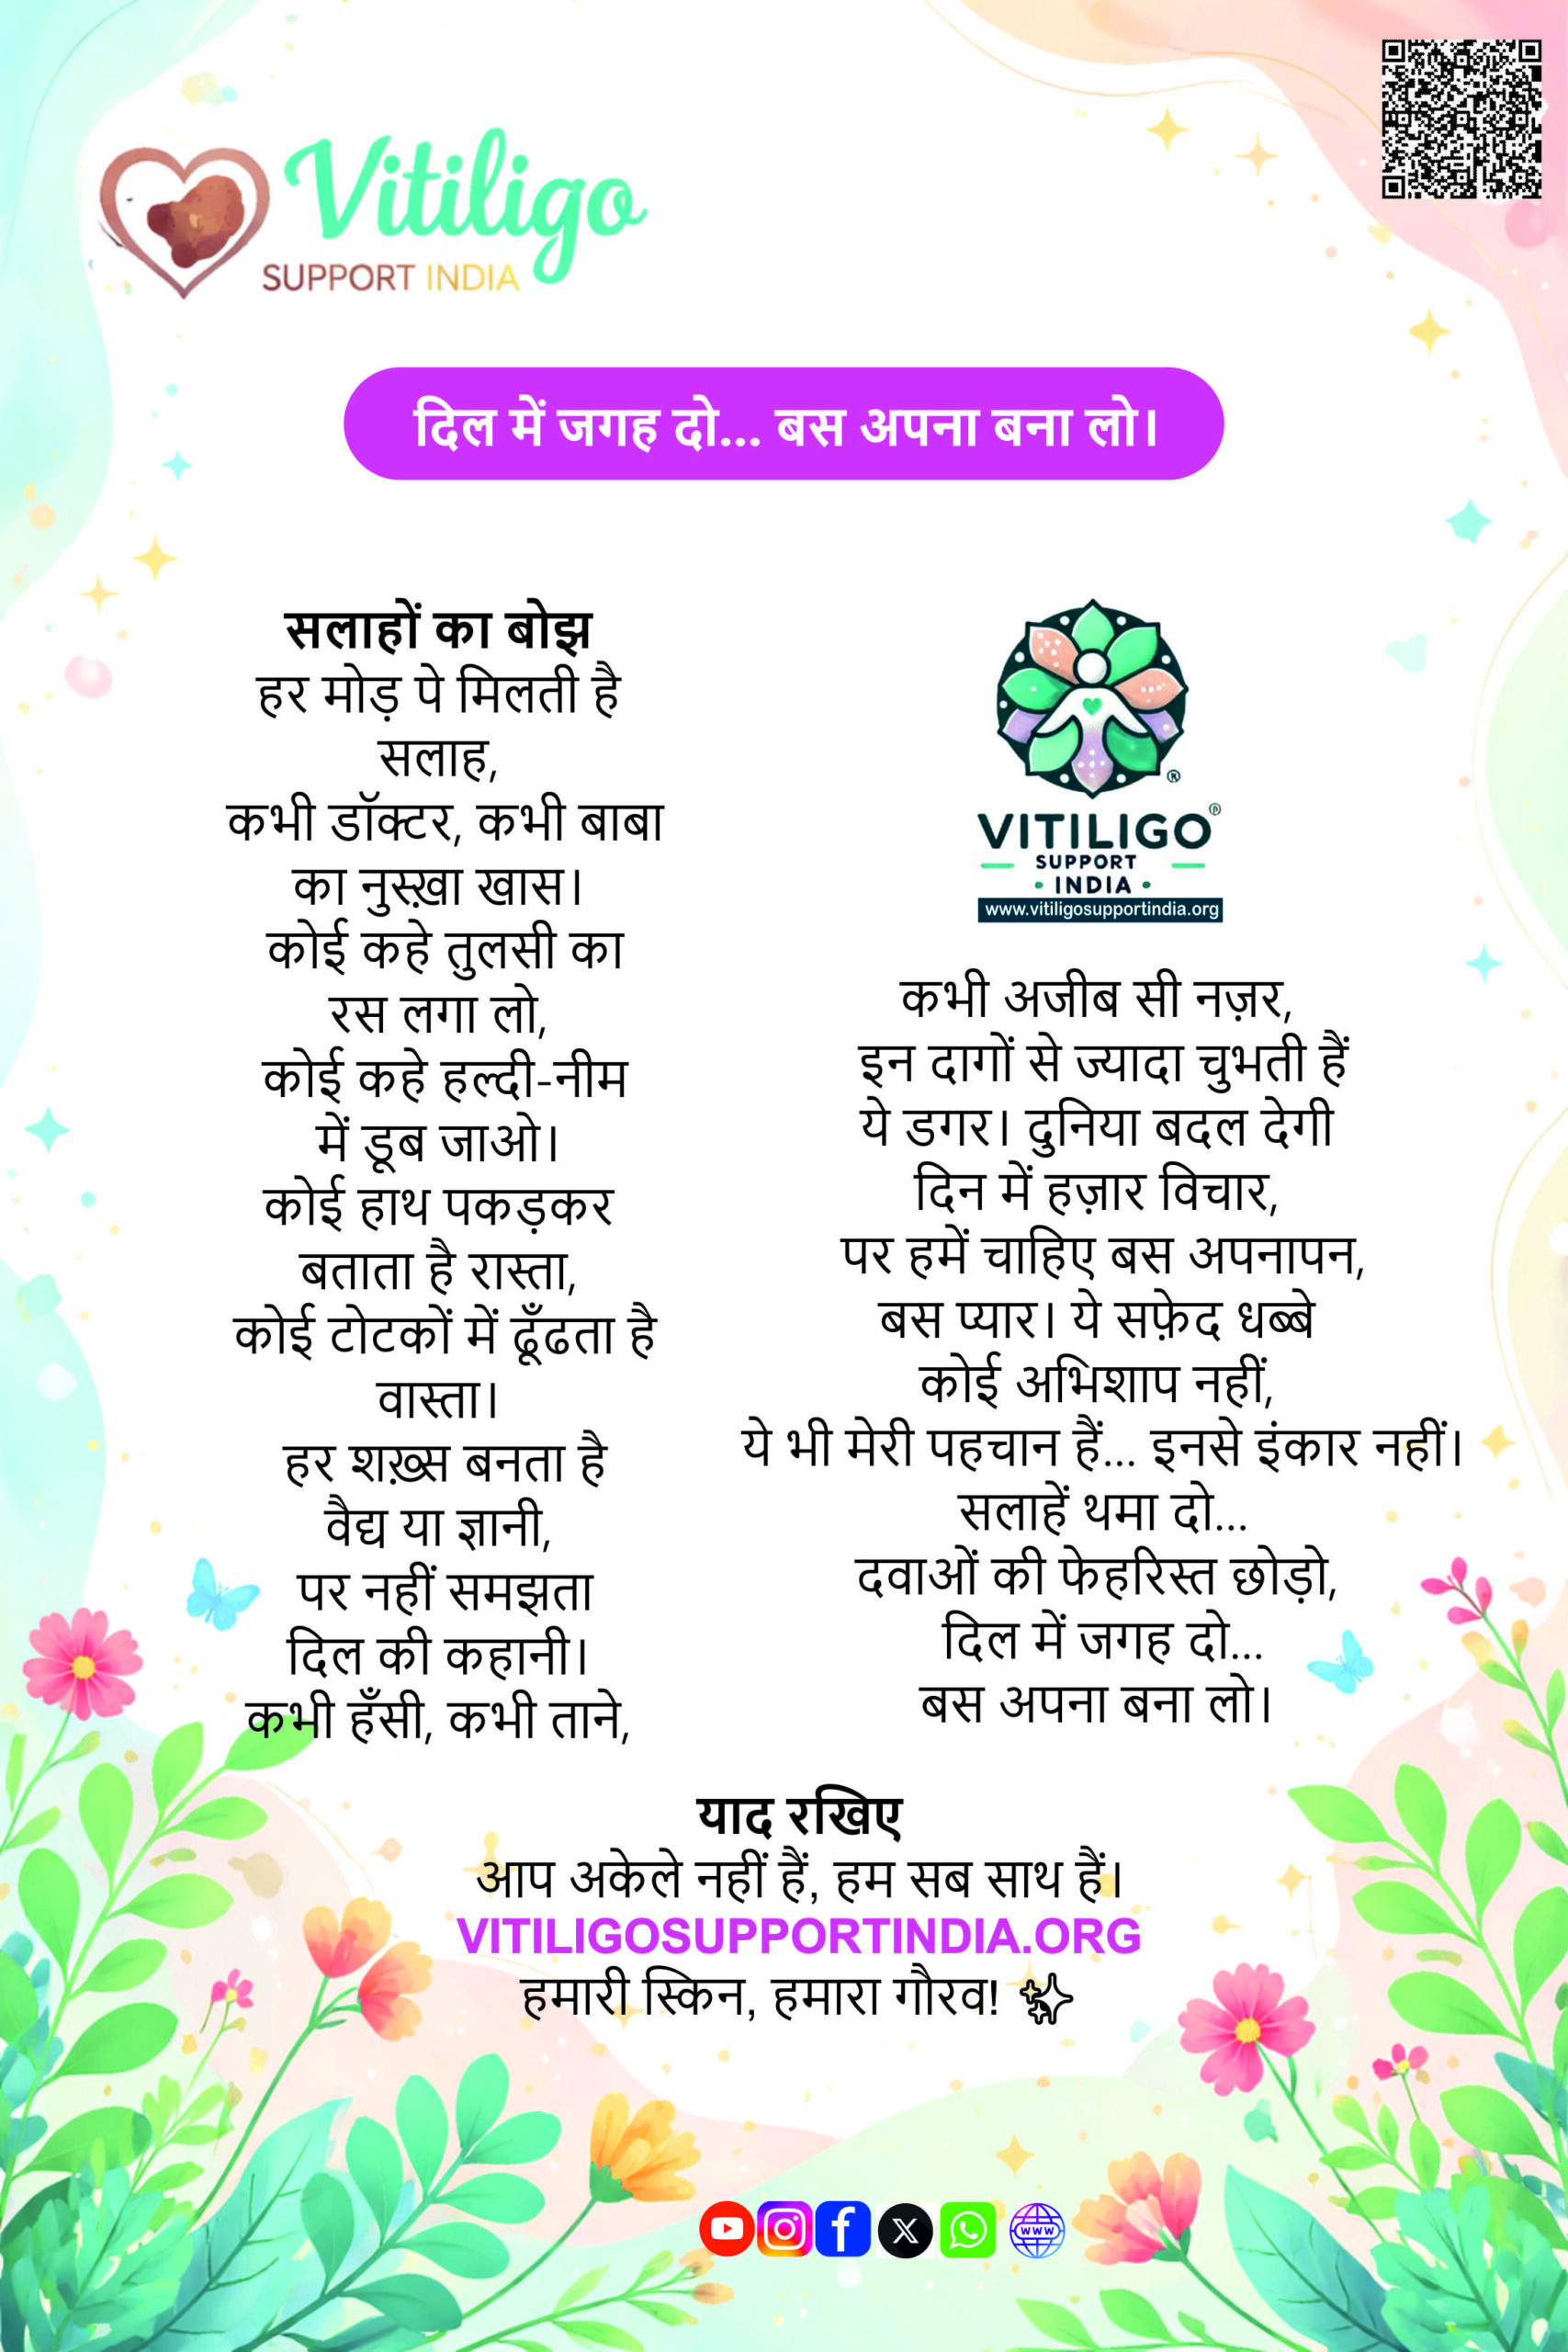 Vitiligo
SUPPORT INDIA
दिल में जगह दो... बस अपना बना लो।
सलाहों का बोझ
हर मोड़ पे मिलती है
सलाह,
कभी डॉक्टर, कभी बाबा
का नुस्ख़ा खास।
कोई कहे तुलसी का
रस लगा लो,
कोई कहे हल्दी-नीम
में डूब जाओ।
कोई हाथ पकड़कर
बताता है रास्ता,
कोई टोटकों में ढूँढता है
वास्ता।
हर शख़्स बनता है
वैद्य या ज्ञानी,
पर नहीं समझता
दिल की कहानी।
कभी हँसी, कभी ताने,
VITILIGO®
SUPPORT
• INDIA •
www.vitiligosupportindia.org
कभी अजीब सी नज़र,
इन दागों से ज्यादा चुभती हैं
ये डगर। दुनिया बदल देगी
दिन में हज़ार विचार,
पर हमें चाहिए बस अपनापन,
बस प्यार। ये सफ़ेद धब्बे
कोई अभिशाप नहीं,
ये भी मेरी पहचान हैं... इनसे इंकार नहीं।
सलाहें थमा दो...
दवाओं की फेहरिस्त छोड़ो,
दिल में जगह दो...
बस अपना बना लो।
याद रखिए
आप अकेले नहीं हैं, हम सब साथ हैं।
VITILIGOSUPPORTINDIA.ORG
हमारी स्किन, हमारा गौरव! ✨
www